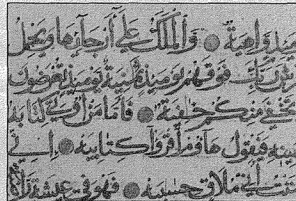 ميذ واهية والملك على أرجائها ويحمل
ربك فوقهم يومئذ ثمنية يومئذ تعرضون
تخفى منكم خافية فأما من أوتي كتابه
يمينه فيقول هاؤم اقرؤا كتابيه إني
ظننت أني ملاق حسابيه فهو في عيشة